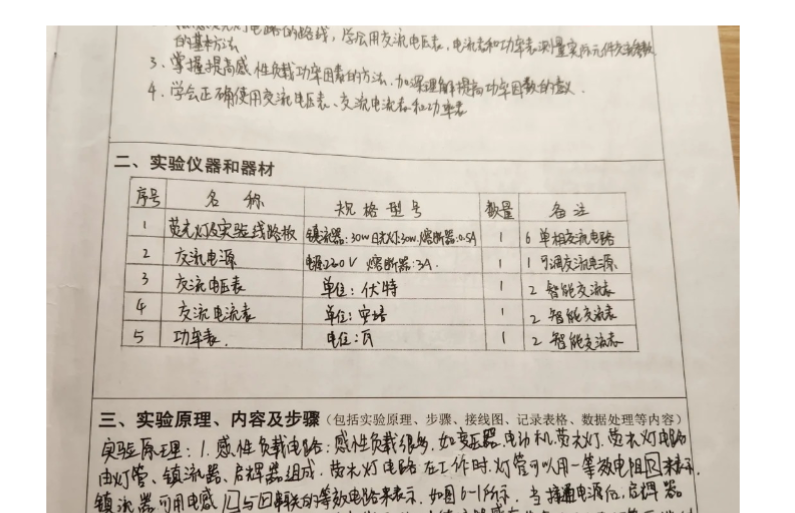 的路线，学会用交流电压表，电流表和功率表测量实际元件交流参数
的基本方法
3、掌握提高感性负载功率因数的方法，加深理解提高功率因数的意义．
4．学会正确使用交流电压表、交流电流表和功率表
二、实验仪器和器材
序号 名 称 规 格 型 号 数量 备 注
1 荧光灯及实验线路板 镇流器：30W 日光灯：30W．熔断器：0.5A 1 6 单相交流电路
2 交流电源 电源：220V 熔断器：3A． 1 1 可调交流电源
3 交流电压表 单位：伏特 1 2 智能交流表
4 交流电流表 单位：安培 1 2 智能交流表
5 功率表． 电位：瓦 1 2 智能交流表
三、实验原理、内容及步骤（包括实验原理、步骤、接线图、记录表格、数据处理等内容）
实验原理：1．感性负载电路：感性负载很多，如变压器，电动机，荧光灯．荧光灯电路
由灯管、镇流器、启辉器组成．荧光灯电路在工作时，灯管可以用一等效电阻R来表示．
镇流器可用电感L与R串联的等效电路来表示．如图6-1所示．当接通电源后，启辉器